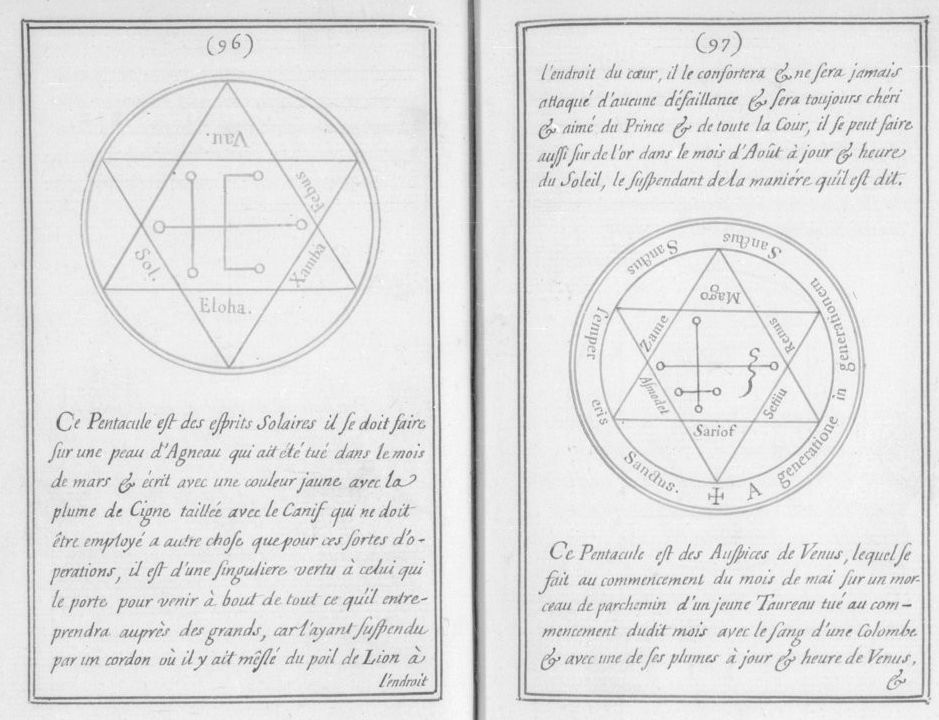 (96)
Vau.
Febus
Sol.
Xamba
Eloha.
Ce Pentacule est des esprits Solaires il se doit faire
sur une peau d'Agneau qui ait été tué dans le mois
de mars & écrit avec une couleur jaune avec la
plume de Cigne taillée avec le Canif qui ne doit
être employé a autre chose que pour ces sortes d'o-
perations, il est d'une singuliere vertu à celui qui
le porte pour venir à bout de tout ce qu'il entre-
prendra auprès des grands, car l'ayant suspendu
par un cordon où il y ait mêslé du poil de Lion à
l'endroit
(97)
l'endroit du cœur, il le confortera & ne sera jamais
attaqué d'aucune défaillance & sera toujours chéri
& aimé du Prince & de toute la Cour, il se peut faire
aussi sur de l'or dans le mois d'Août à jour & heure
du Soleil, le suspendant de la maniére qu'il est dit.
A generatione in generationem Sanctus Sanctus semper eris Sanctus.
Mago
Zame
Renus
Asmodel
Setiiu
Sariof
Ce Pentacule est des Auspices de Venus, lequel se
fait au commencement du mois de mai sur un mor-
ceau de parchemin d'un jeune Taureau tué au com-
mencement dudit mois avec le sang d'une Colombe
& avec une de ses plumes à jour & heure de Venus,
&